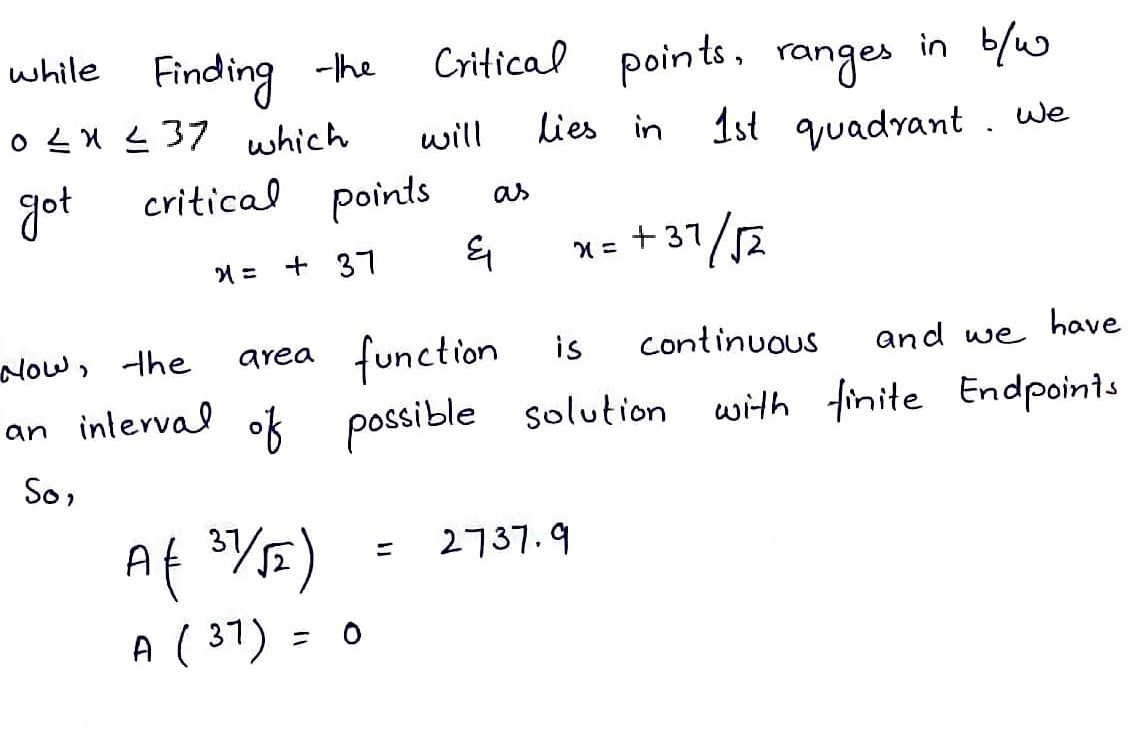 while Finding the Critical points, ranges in b/w
0 ≤ x ≤ 37 which will lies in 1st quadrant. We
got critical points as
x = + 37 & x = + 37/√2
Now, the area function is continuous and we have
an interval of possible solution with finite Endpoints
So,
A( 37/√2) = 2737.9
A ( 37) = 0